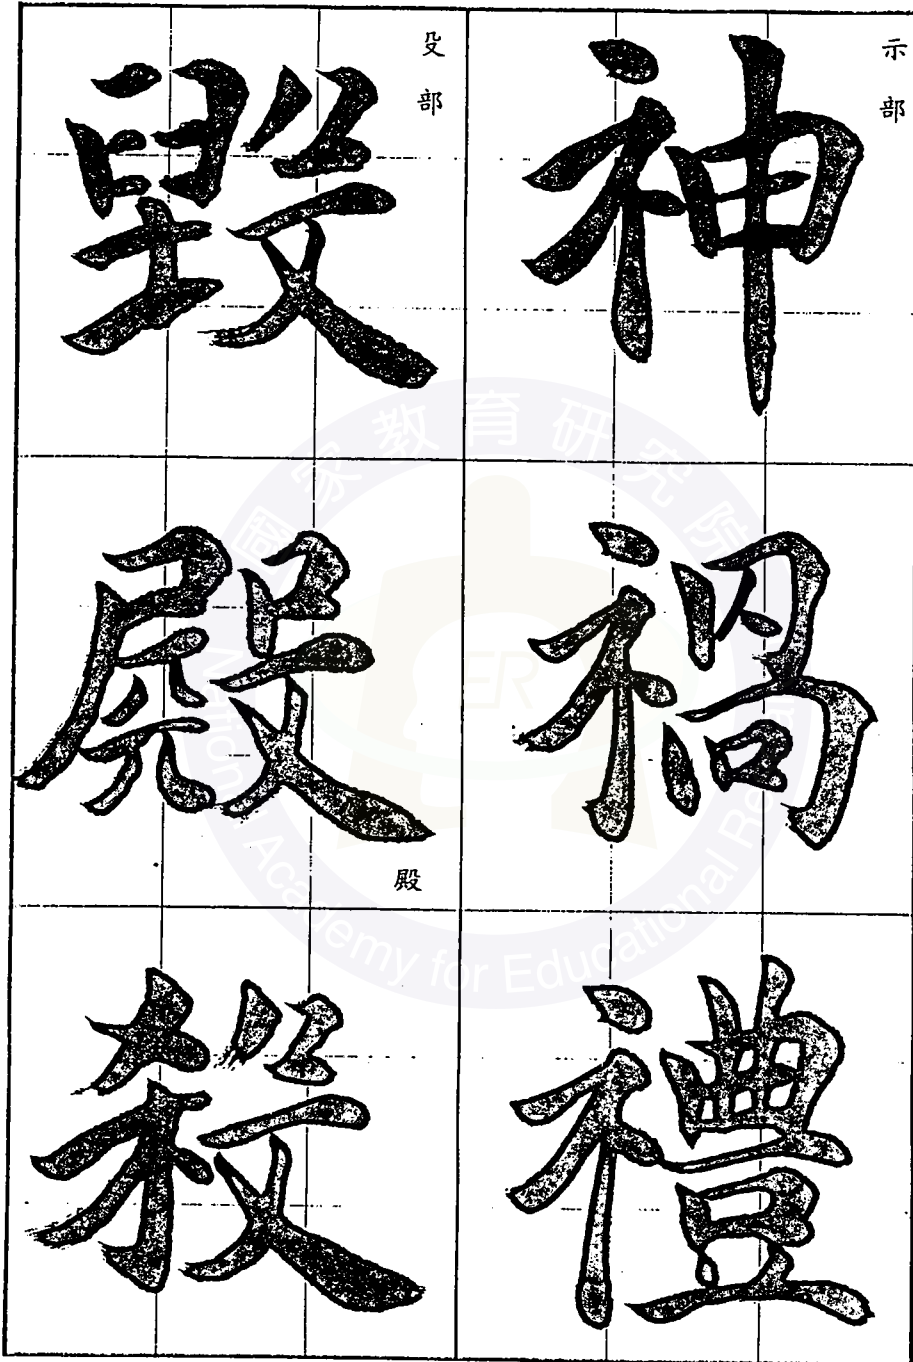 示部
神
禍
禮
殳部
毀
殿
殿
殺
國家教育研究院
National Academy for Educational Research
NAER